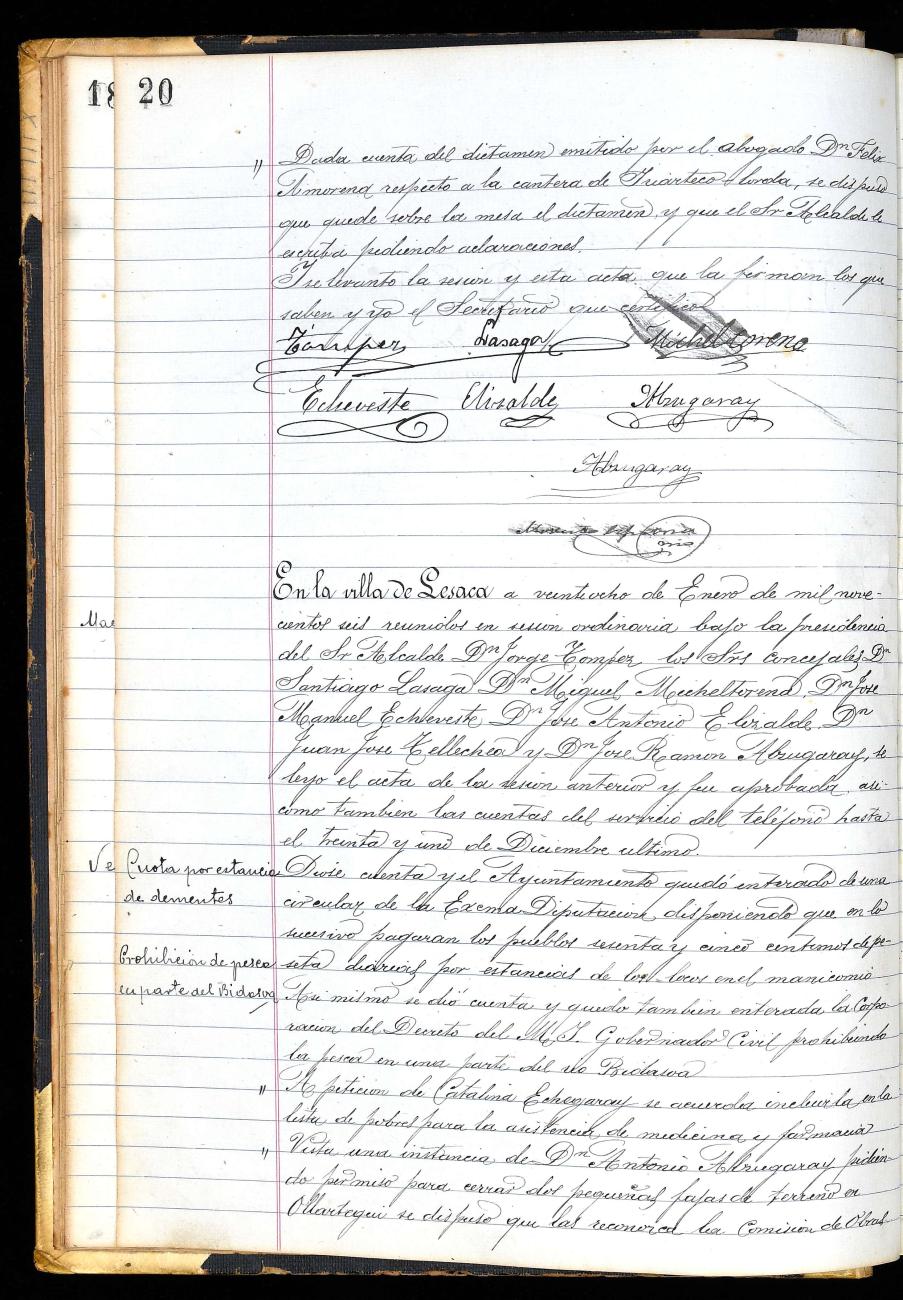 18 20
" Dada cuenta del dictamen emitido por el abogado Dn Felix
Amorena respecto a la cantera de se dispuso
que quede sobre la mesa el dictamen y que el Sr Alcalde le
escriba pidiendo aclaraciones.
Y se levanto la sesion y esta acta que la firman los que
saben y yo el Secretario que certifico
Tompez Lasaga Micheltorena
Echeveste Elizalde Abzugaray
Abzugaray
En la villa de Lesaca a veintiocho de Enero de mil nove-
cientos seis reunidos en sesion ordinaria bajo la presidencia
del Sr Alcalde Dn Jorge Tompez los Srs concejales Dn
Santiago Lasaga Dn Miguel Micheltorena Dn Jose
Manuel Echeveste Dn Jose Antonio Elizalde Dn
Juan Jose Tellechea y Dn Jose Ramon Abzugaray, se
leyo el acta de la sesion anterior y fue aprobada asi
como tambien las cuentas del servicio del teléfono hasta
el treinta y uno de Diciembre ultimo.
Cuota por estancia
de dementes
Diose cuenta y el Ayuntamiento quedó enterado de una
circular de la Exema Diputacion, disponiendo que en lo
sucesivo pagaran los pueblos sesenta y cinco centimos de pe-
seta diarias por estancias de los locos en el manicomio
Prohibicion de pesca
en parte del Bidasoa
Asi mismo se dió cuenta y quedo tambien enterada la Corpo
racion del Decreto del M. I. Gobernador Civil prohibiendo
la pesca en una parte del rio Bidasoa
" A peticion de Catalina Echegaray se acuerda incluirla en la
lista de pobres para la asistencia de medicina y farmacia
" Vista una instancia de Dn Antonio Abzugaray pidien-
do permiso para cerrar dos pequeñas fajas de terreno en
Ollartegui se dispuso que las reconozca la Comision de Obras